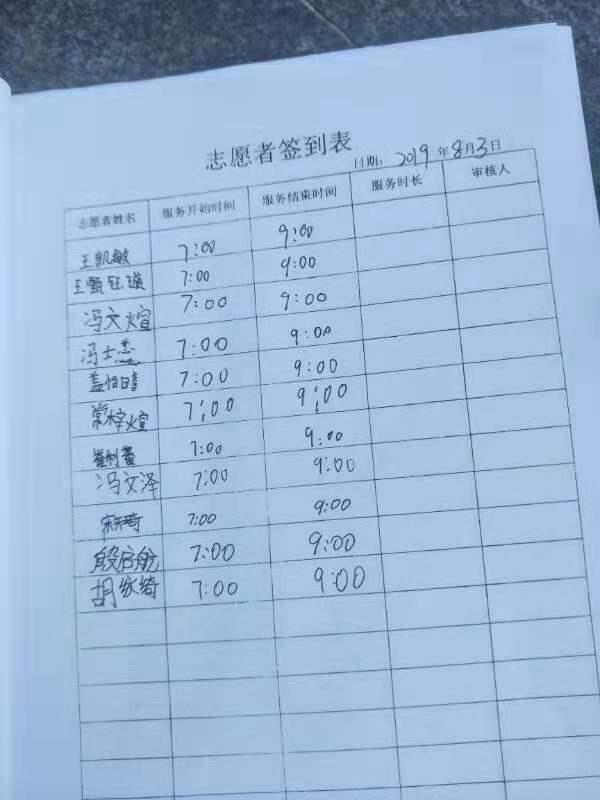 志愿者签到表
日期: 2019 年 8月3日
志愿者姓名 服务开始时间 服务结束时间 服务时长 审核人
王凯敏 7:00 9:00
王甄钰瑛 7:00 9:00
冯文煊 7:00 9:00
冯士蕊 7:00 9:00
盖怡睛 7:00 9:00
常梓煊 7:00 9:00
7:00 9:00
冯文泽 7:00 9:00
7:00 9:00
段启航 7:00 9:00
胡家绮 7:00 9:00